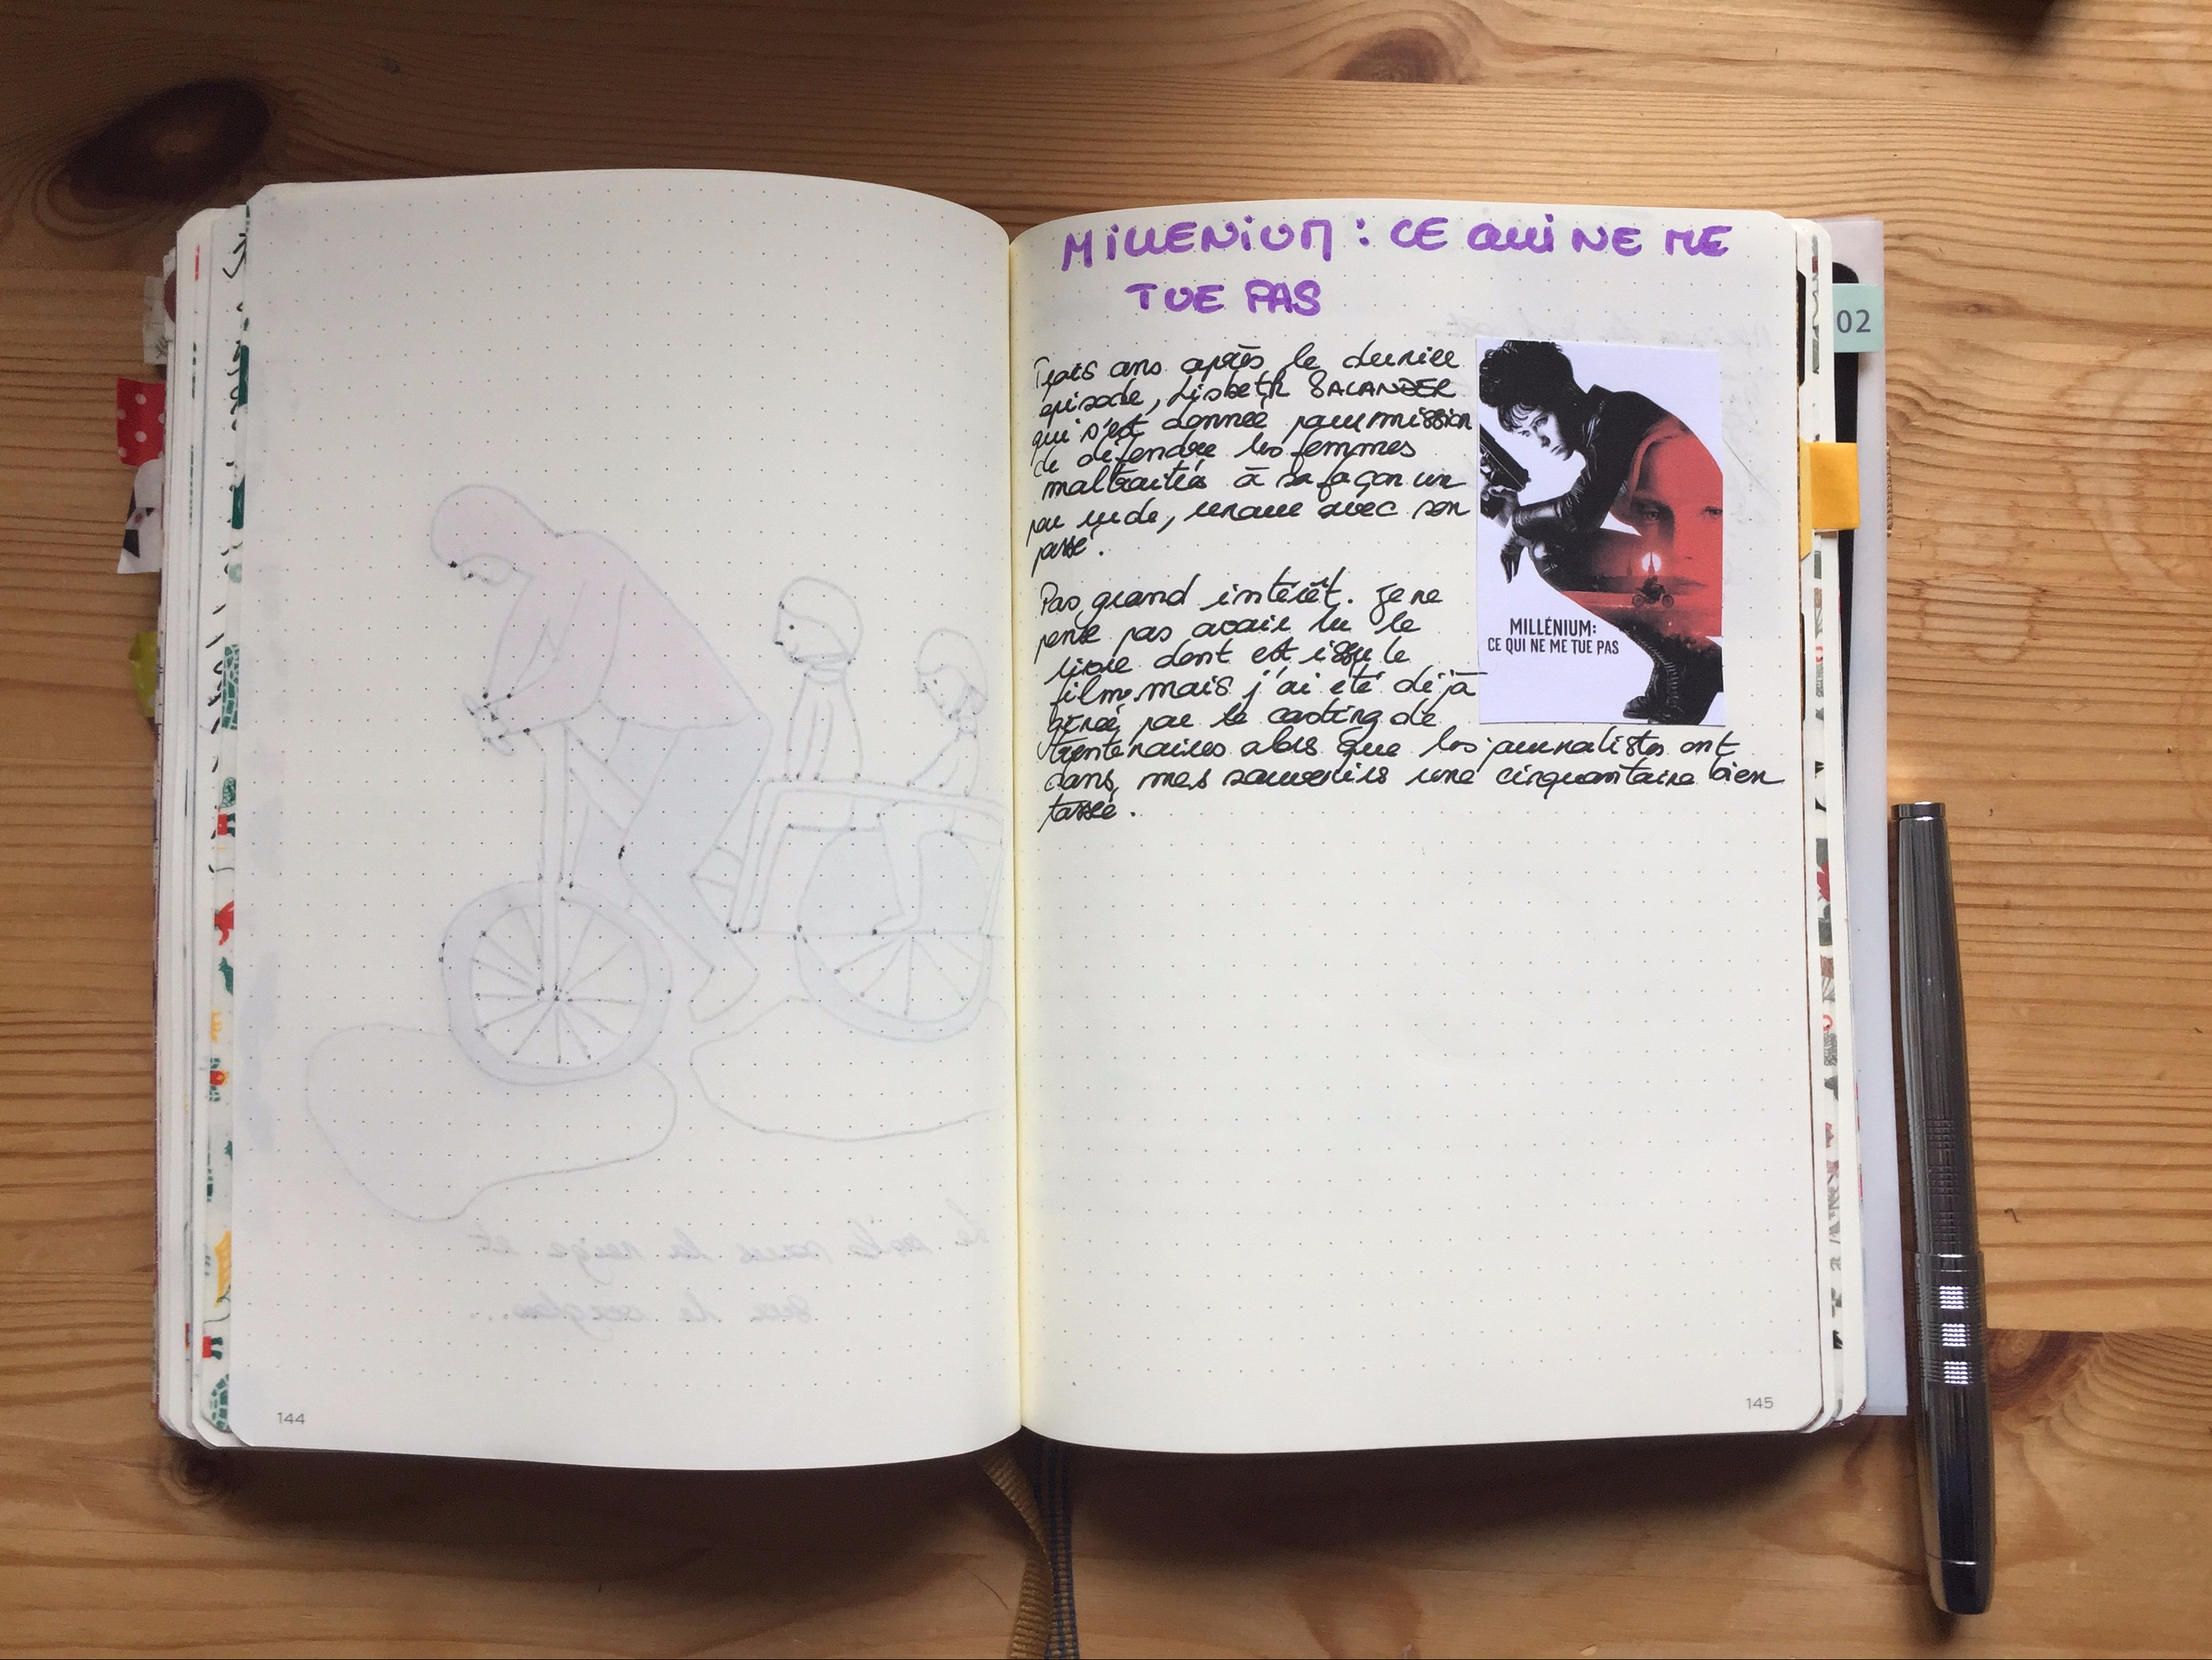 MILLENIUM : CE QUI NE ME
TUE PAS
Trois ans après le dernier
épisode, Lisbeth SALANDER
qui s'est donnée pour mission
de défendre les femmes
maltraités à sa façon un
peu rude, renoue avec son
passé.
Pas grand intérêt. Je ne
pense pas avoir lu le
livre dont est issu le
film, mais j'ai été déjà
gênée par le casting de
trentenaires alors que les journalistes ont
dans mes souvenirs une cinquantaine bien
tassé.
MILLÉNIUM:
CE QUI NE ME TUE PAS
02
Le vélo sous la neige et
sur le verglas...
144
145